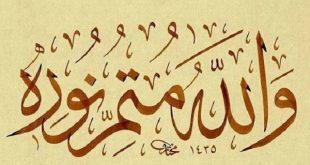 وَاللّٰهُ مُتِمُّ نُورِهِ
١٤٣٥